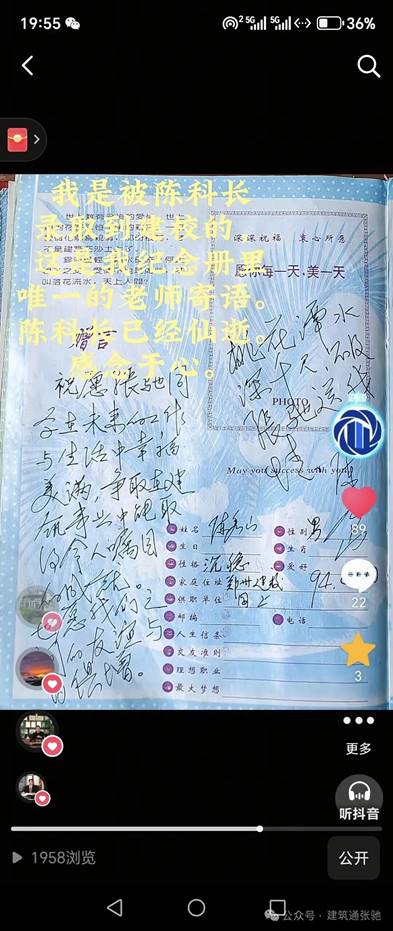 19:55
5G
5G
36%
我是被陈科长
录取到建校的
这是我纪念册里
唯一的老师寄语。
陈科长已经仙逝。
感念于心。
叫落花流水，天上人间
深深祝福 衷心所愿
愿你每一天，美一天
赠言
祝愿张驰同
学在未来的工作
与生活中幸福
美满，争取在建
筑事业中取
得令人嘱目
的成
也愿我们之
间的友谊与
日俱增。
桃花潭水
深千尺
PHOTO
May you success with you
姓名
性别 男
生日
生肖
性格 沉稳
爱好
家庭住址 郑州建校
供职单位 同上
邮编
电话
人生信条
交友准则
理想职业
最大梦想
89
22
3
更多
听抖音
1958浏览
公开
公众号 · 建筑通张驰